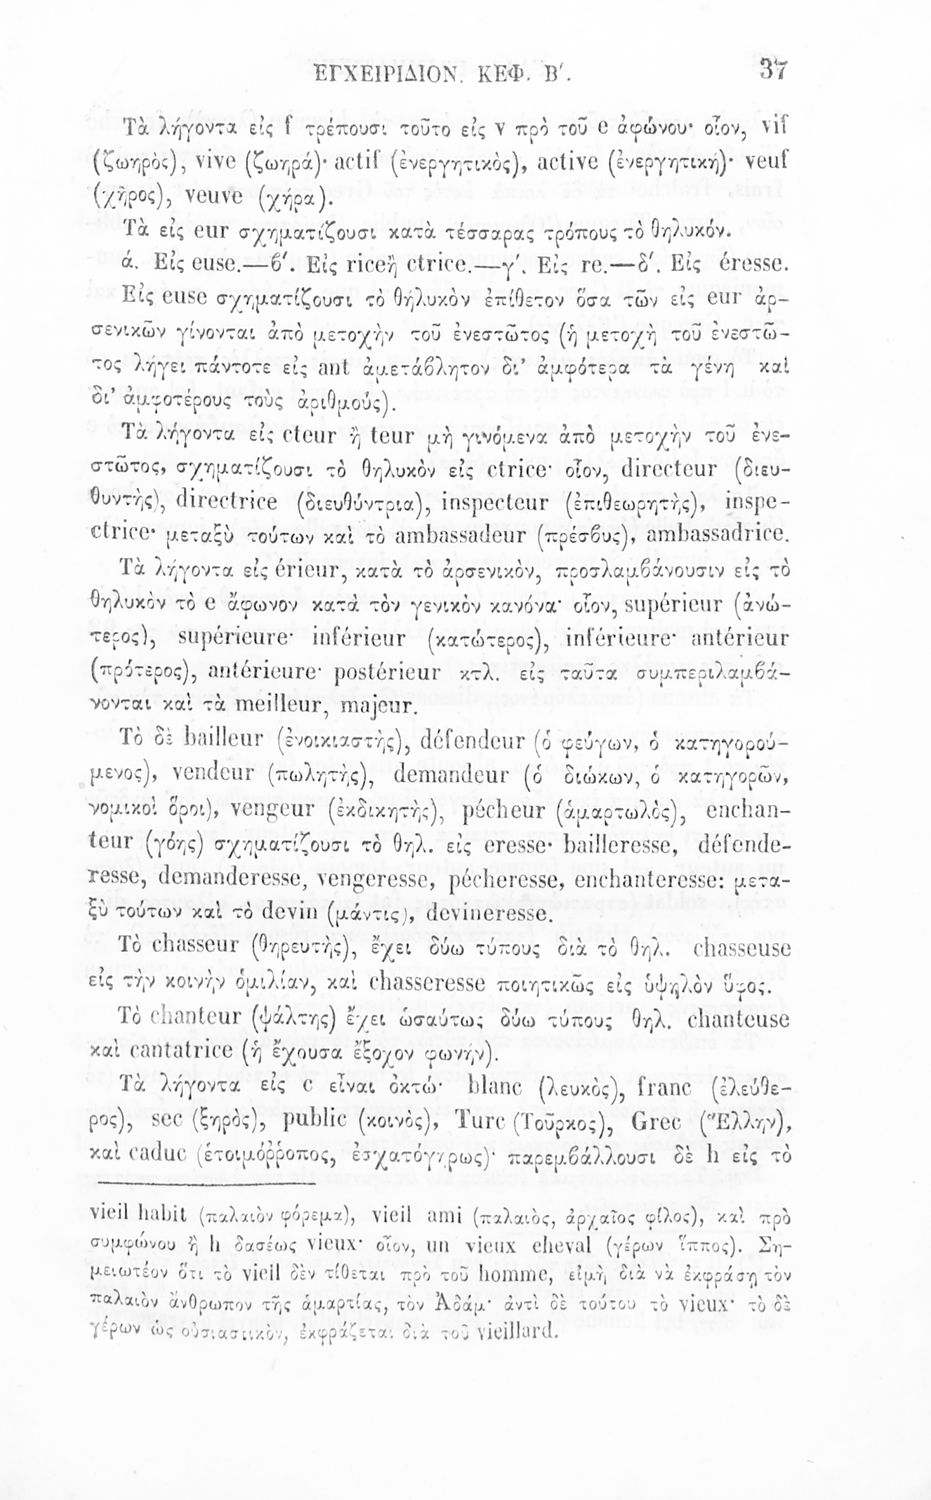 ΕΓΧΕΙΡΙΔΙΟΝ. ΚΕΦ. Β′. 37
Τὰ λήγοντα εἰς f τρέπουσι τοῦτο εἰς v πρὸ τοῦ e ἀφώνου· οἷον, vif
(ζωηρὸς), vive (ζωηρά)· actif (ἐνεργητικὸς), active (ἐνεργητική)· veuf
(χῆρος), veuve (χήρα).
Τὰ εἰς eur σχηματίζουσι κατὰ τέσσαρας τρόπους τὸ θηλυκόν.
ά. Εἰς euse.—ϐ′. Εἰς rice ἢ ctrice.—γ′. Εἰς re.—δ′. Εἰς éresse.
Εἰς euse σχηματίζουσι τὸ θηλυκὸν ἐπίθετον ὅσα τῶν εἰς eur ἀρ-
σενικῶν γίνονται ἀπὸ μετοχὴν τοῦ ἐνεστῶτος (ἡ μετοχὴ τοῦ ἐνεστῶ-
τος λήγει πάντοτε εἰς ant ἀμετάϐλητον δι' ἀμφότερα τὰ γένη καὶ
δι' ἀμφοτέρους τοὺς ἀριθμούς).
Τὰ λήγοντα εἰς cteur ἢ teur μὴ γινόμενα ἀπὸ μετοχὴν τοῦ ἐνε-
στῶτος, σχηματίζουσι τὸ θηλυκὸν εἰς ctrice· οἷον, directeur (διευ-
θυντὴς), directrice (διευθύντρια), inspecteur (ἐπιθεωρητὴς), inspe-
ctrice· μεταξὺ τούτων καὶ τὸ ambassadeur (πρέσϐυς), ambassadrice.
Τὰ λήγοντα εἰς érieur, κατὰ τὸ ἀρσενικὸν, προσλαμϐάνουσιν εἰς τὸ
θηλυκὸν τὸ e ἄφωνον κατὰ τὸν γενικὸν κανόνα· οἷον, supérieur (ἀνώ-
τερος), supérieure· inférieur (κατώτερος), inférieure· antérieur
(πρότερος), antérieure· postérieur κτλ. εἰς ταῦτα συμπεριλαμϐά-
νονται καὶ τὰ meilleur, majeur.
Τὸ δὲ bailleur (ἐνοικιαστὴς), défendeur (ὁ φεύγων, ὁ κατηγορού-
μενος), vendeur (πωλητὴς), demandeur (ὁ διώκων, ὁ κατηγορῶν,
νομικοὶ ὅροι), vengeur (ἐκδικητὴς), pécheur (ἁμαρτωλὸς), enchan-
teur (γόης) σχηματίζουσι τὸ θηλ. εἰς eresse· bailleresse, défende-
resse, demanderesse, vengeresse, pécheresse, enchanteresse: μετα-
ξὺ τούτων καὶ τὸ devin (μάντις), devineresse.
Τὸ chasseur (θηρευτὴς), ἔχει δύω τύπους διὰ τὸ θηλ. chasseuse
εἰς τὴν κοινὴν ὁμιλίαν, καὶ chasseresse ποιητικῶς εἰς ὑψηλὸν ὕφος.
Τὸ chanteur (ψάλτης) ἔχει ὡσαύτως δύω τύπους θηλ. chanteuse
καὶ cantatrice (ἡ ἔχουσα ἔξοχον φωνήν).
Τὰ λήγοντα εἰς c εἶναι ὀκτώ· blanc (λευκὸς), franc (ἐλεύθε-
ρος), sec (ξηρὸς), public (κοινὸς), Turc (Τοῦρκος), Grec (Ἕλλην),
καὶ caduc (ἑτοιμόῤῥοπος, ἐσχατόγηρως)· παρεμϐάλλουσι δὲ h εἰς τὸ
vieil habit (παλαιὸν φόρεμα), vieil ami (παλαιὸς, ἀρχαῖος φίλος), καὶ πρὸ
συμφώνου ἢ h δασέως vieux· οἷον, un vieux cheval (γέρων ἵππος). Ση-
μειωτέον ὅτι τὸ vieil δὲν τίθεται πρὸ τοῦ homme, εἰμὴ διὰ νὰ ἐκφράσῃ τὸν
παλαιὸν ἄνθρωπον τῆς ἁμαρτίας, τὸν Ἀδάμ· ἀντὶ δὲ τούτου τὸ vieux· τὸ δὲ
γέρων ὡς οὐσιαστικὸν, ἐκφράζεται διὰ τοῦ vieillard.